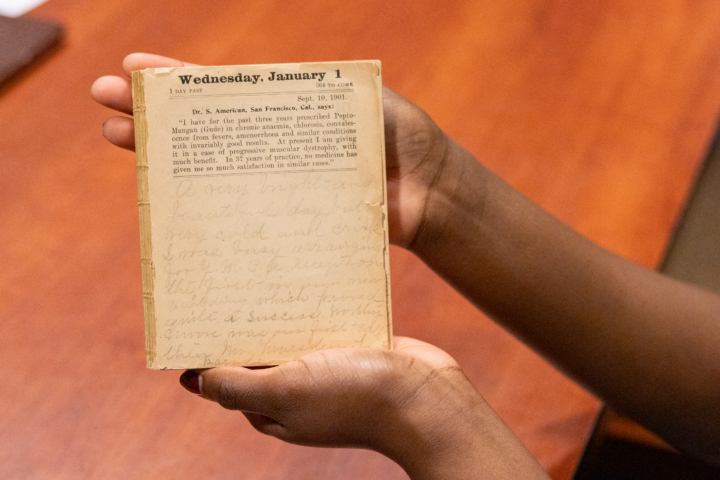 Wednesday, January 1
1 DAY PAST 364 TO COME
Sept. 10, 1901.
Dr. S. American, San Francisco, Cal., says:
"I have for the past three years prescribed Pepto-
Mangan (Gude) in chronic anaemia, chlorosis, convales-
cence from fevers, amenorrhoea and similar conditions
with invariably good results. At present I am giving
it in a case of progressive muscular dystrophy, with
much benefit. In 37 years of practice, no medicine has
given me so much satisfaction in similar cases."
A very bright and
beautiful day but
very cold and crisp
I was busy arranging
for reception
the first in our new
building which proved
quite a success
was our first
their